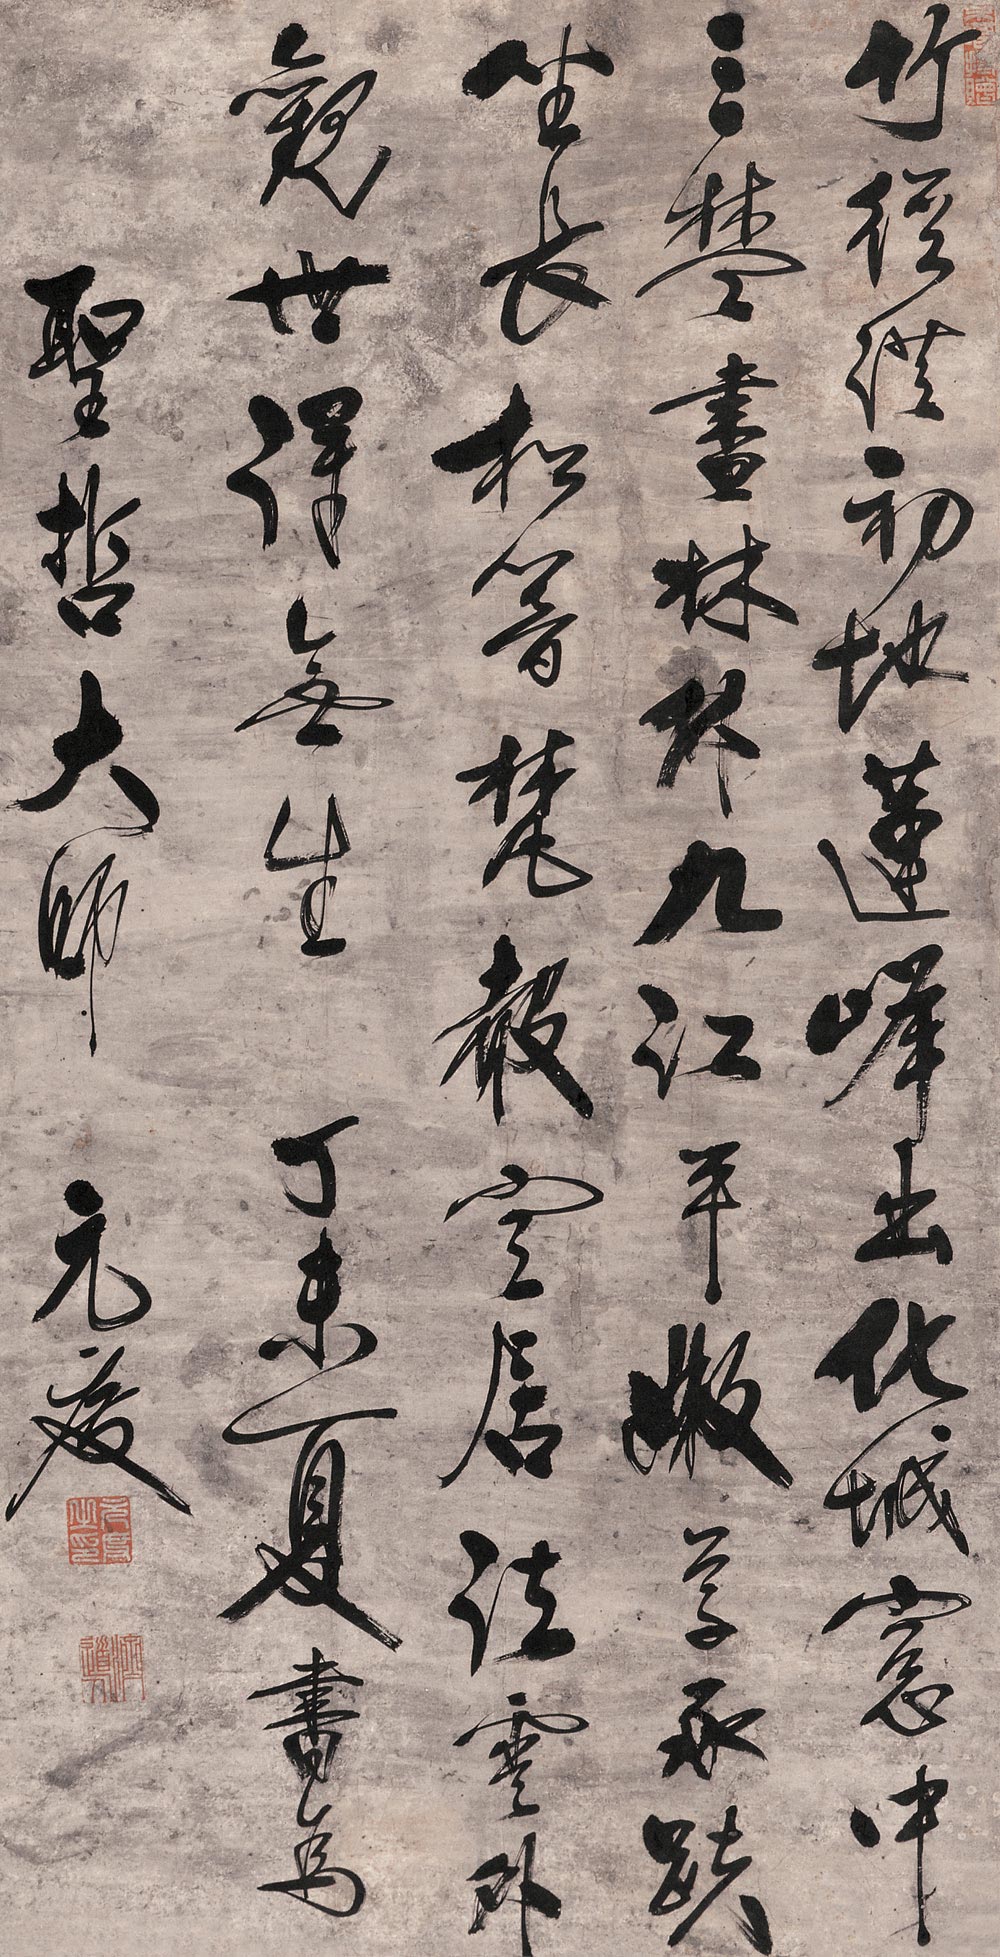 竹徑從初地蓮峰出化城窓中
三楚盡林外九江平嫩草承趺
坐長松響梵聲空居法雲外
觀世得無生 丁未夏書為
聖哲大師 元